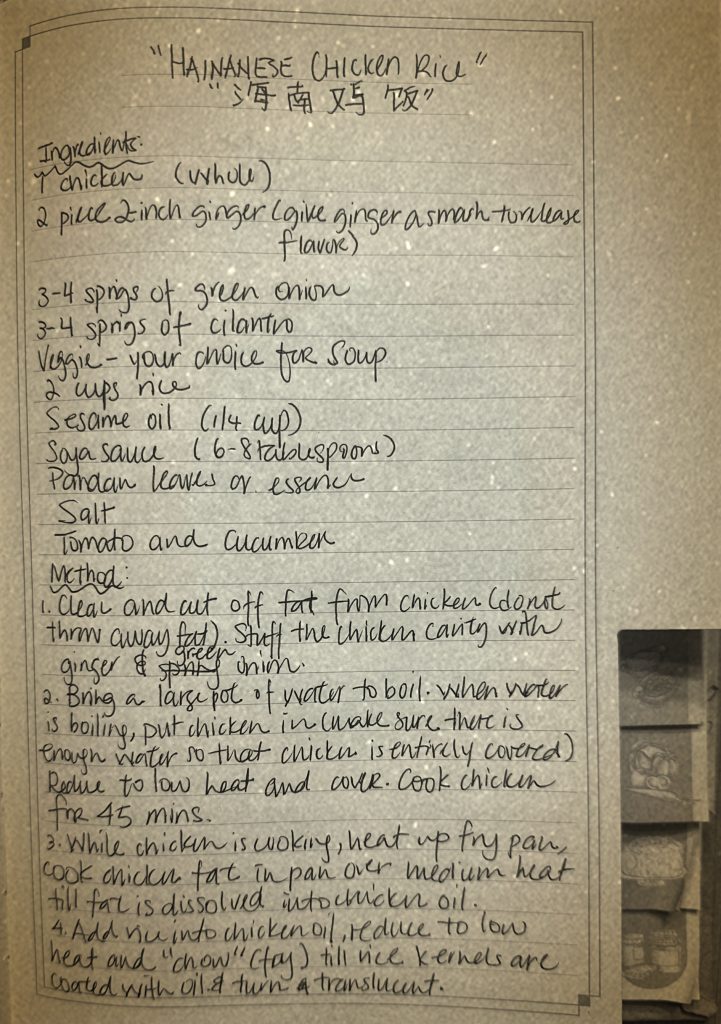 "HAINANESE CHICKEN RICE"
"海南鸡饭"
Ingredients:
1 chicken (whole)
2 piece 2-inch ginger (give ginger a smash to release
flavor)
3-4 sprigs of green onion
3-4 sprigs of cilantro
Veggie - your choice for soup
2 cups rice
Sesame oil (1/4 cup)
Soya sauce (6-8 tablespoons)
Pandan leaves or essence
Salt
Tomato and cucumber
Method:
1. Clean and cut off fat from chicken (do not
throw away fat). Stuff the chicken cavity with
ginger & green onion.
2. Bring a large pot of water to boil. When water
is boiling, put chicken in (make sure there is
enough water so that chicken is entirely covered)
Reduce to low heat and cover. Cook chicken
for 45 mins.
3. While chicken is cooking, heat up fry pan,
cook chicken fat in pan over medium heat
till fat is dissolved into chicken oil.
4. Add rice into chicken oil, reduce to low
heat and "chow" (fry) till rice kernels are
coated with oil & turn translucent.